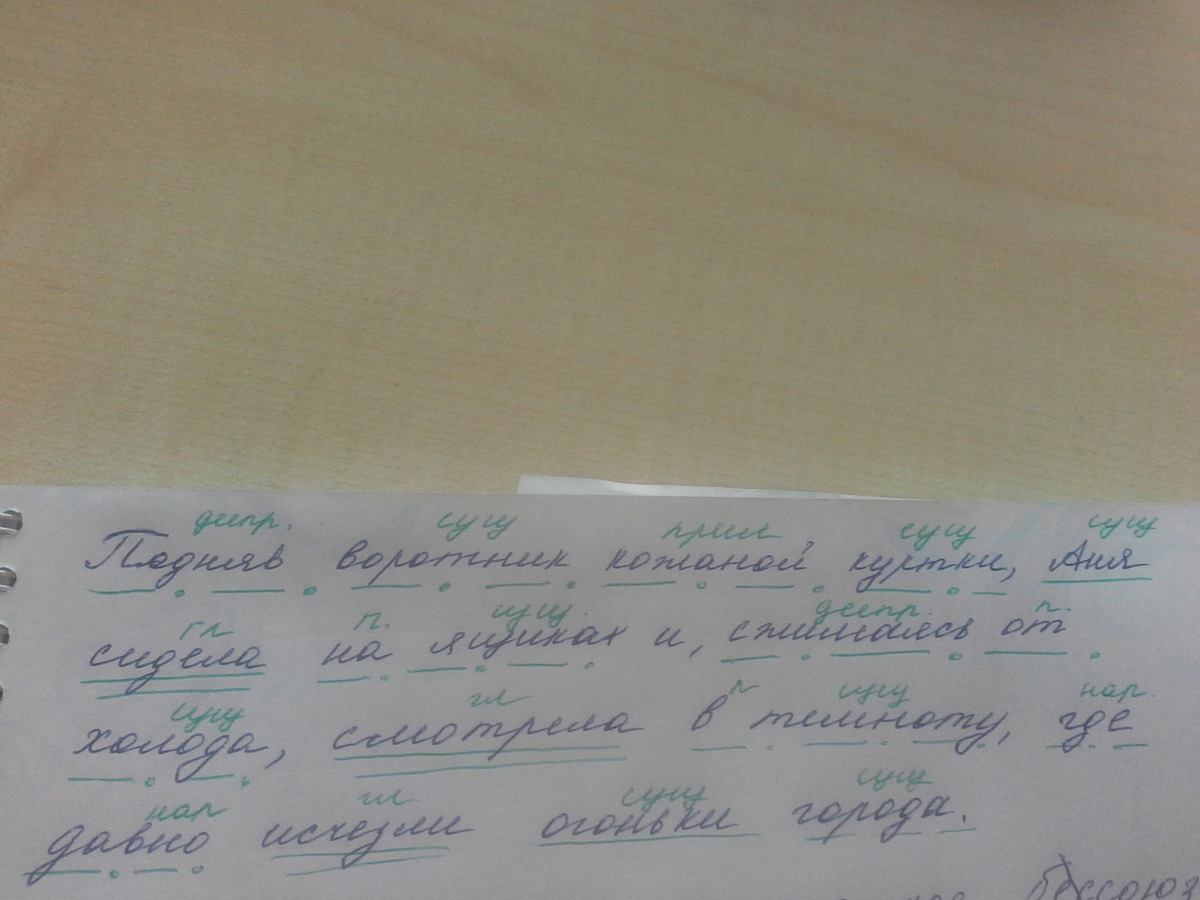 деепр. сущ прил сущ сущ
Подняв воротник кожаной куртки, Аня
гл п. сущ. деепр. п.
сидела на ящиках и, сжимаясь от
сущ гл п сущ нар
холода, смотрела в темноту, где
нар гл сущ сущ
давно исчезли огоньки города.
бессоюз